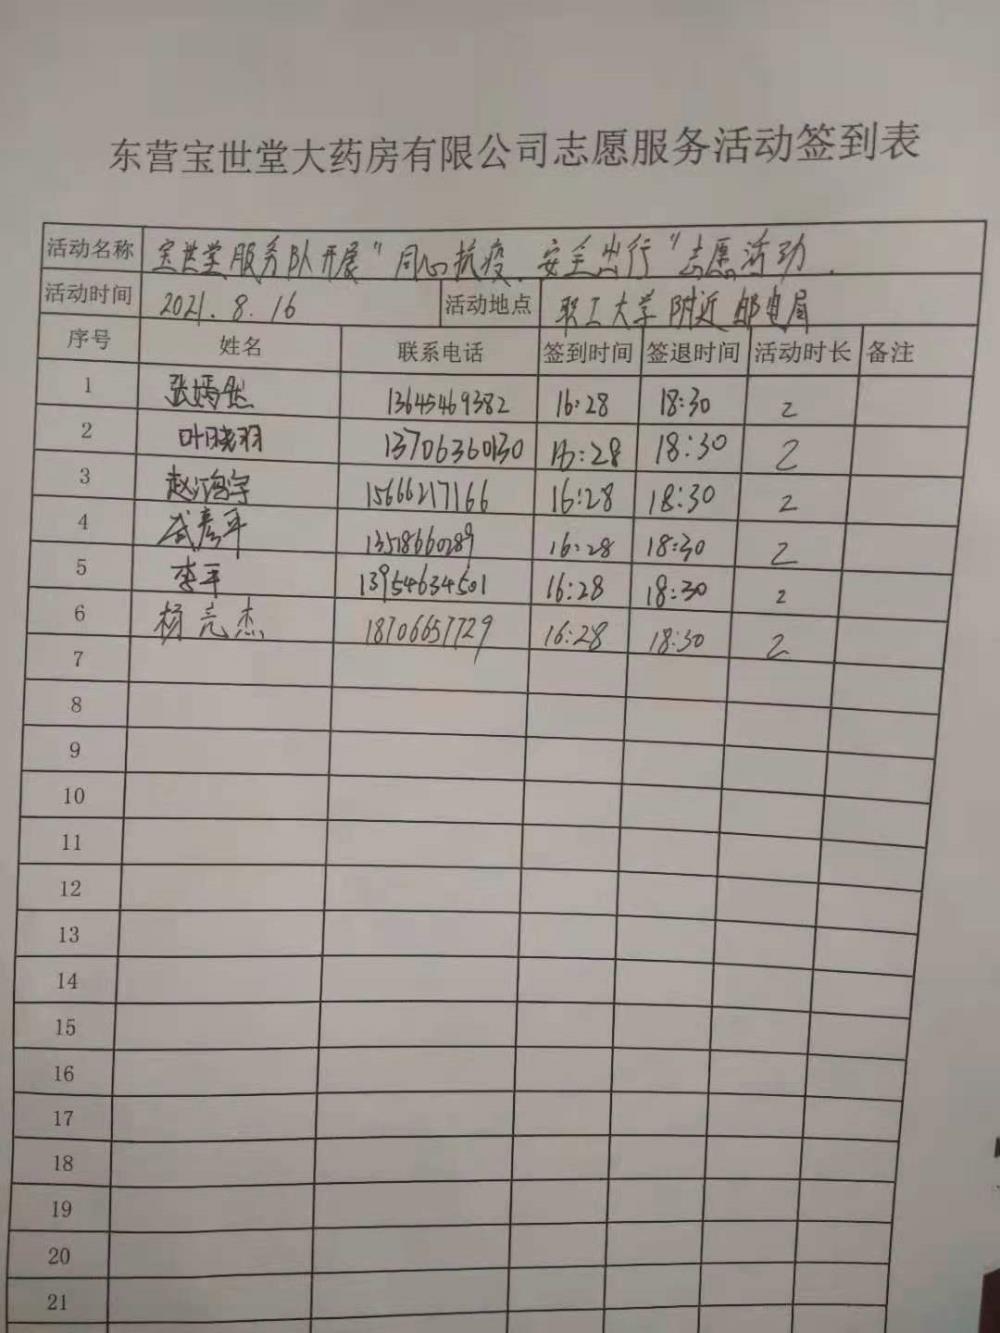 东营宝世堂大药房有限公司志愿服务活动签到表
活动名称 宝世堂服务队开展“同心抗疫、安全出行”志愿活动.
活动时间 2021.8.16 活动地点 职工大学附近邮电局
序号 姓名 联系电话 签到时间 签退时间 活动时长 备注
1 张嫣然 13645469382 16:28 18:30 2
2 叶晓羽 13706360130 16:28 18:30 2
3 赵鸿宇 15666217166 16:28 18:30 2
4 武彦平 13518660289 16:28 18:30 2
5 李平 13954634501 16:28 18:30 2
6 杨亮杰 18706657729 16:28 18:30 2
7
8
9
10
11
12
13
14
15
16
17
18
19
20
21